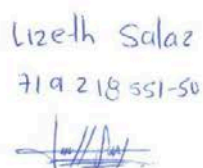 Lizeth Salaz
719 218 551-50